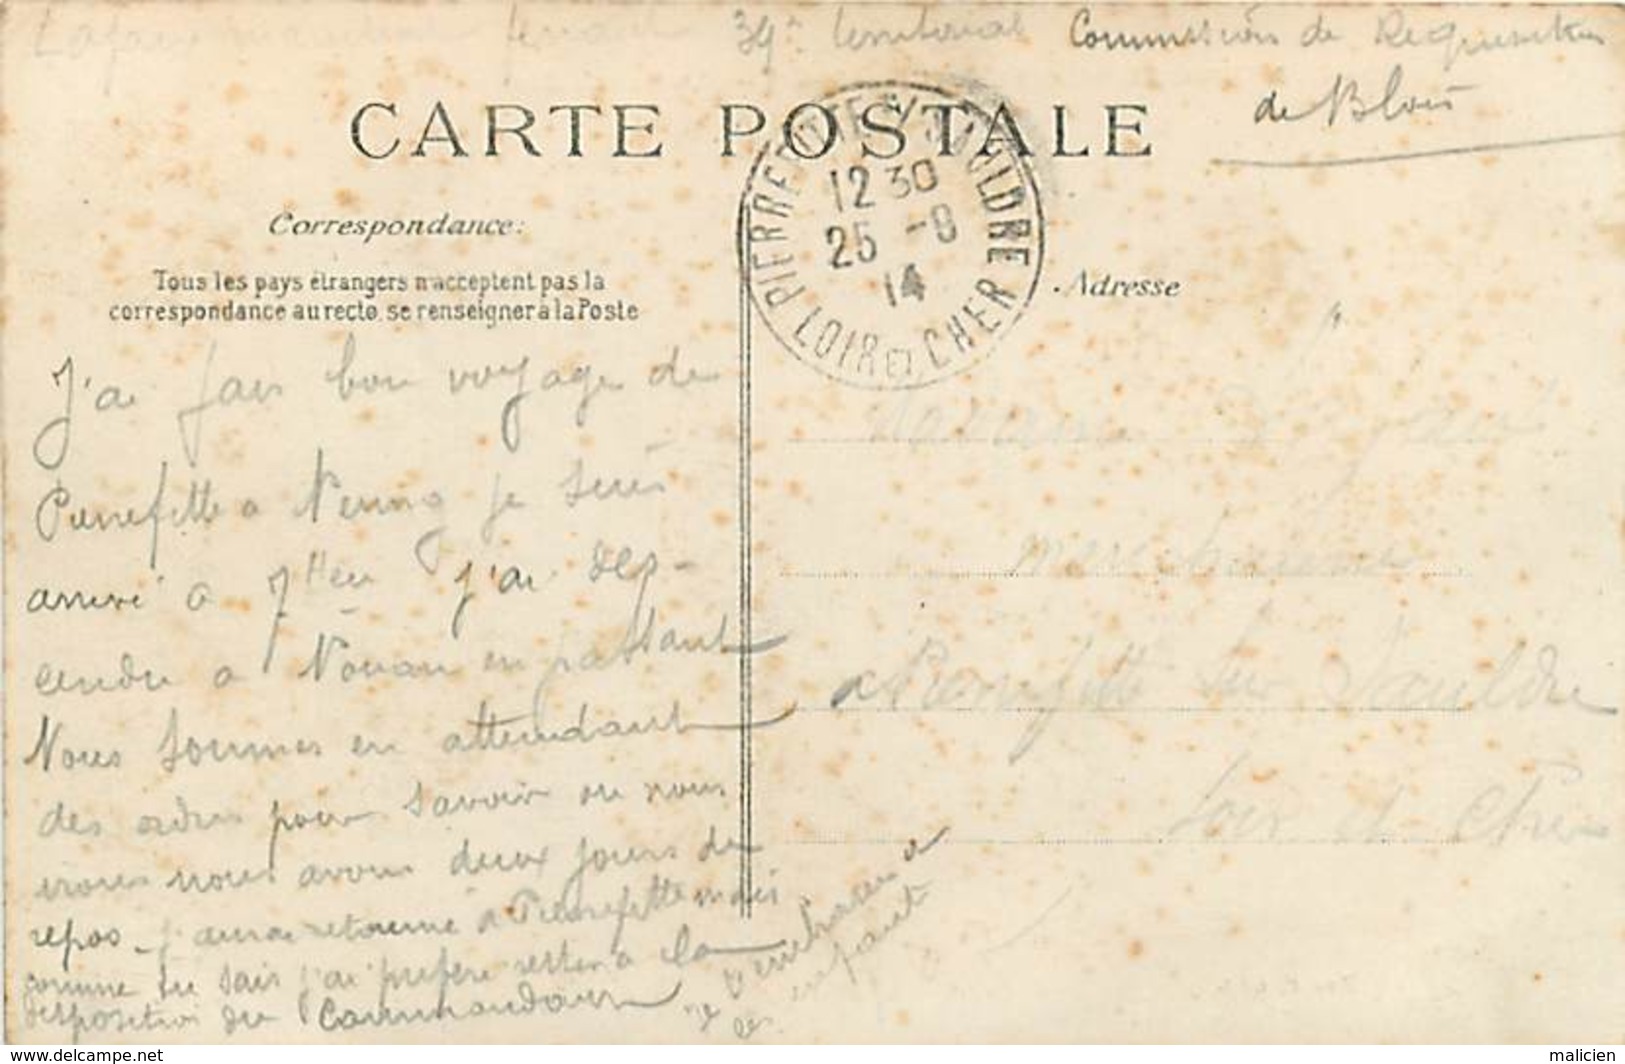 39e territorial Commission de Requisition
de Blois
CARTE POSTALE
PIERREFITTE S/ SAULDRE
12 30
25 -8
14
LOIR ET CHER
Correspondance:
Tous les pays étrangers n'acceptent pas la
correspondance au recto, se renseigner à la Poste
Adresse
J'ai fais bon voyage de
Pierrefitte a Neung je suis
arrivé a 7h J'ai des-
cendu a Nouan en passant
Nous sommes en attendant
des ordres pour savoir ou nous
irons nous avons deux jours de
repos - J'aurai retourné a Pierrefitte mais
comme tu sais j'ai préféré rester a la
disposition du Commandant
enfant
Madame
a Pierrefitte sur Sauldre
Loir et Cher
www.delcampe.net
malicien